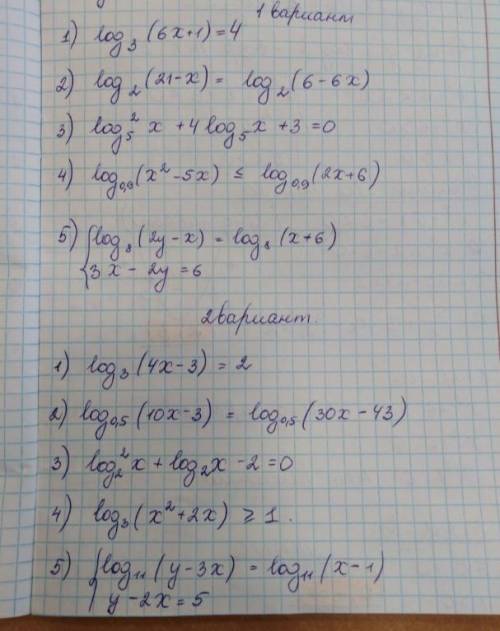 1 вариант
1) log₃(6x+1)=4
2) log₂(21-x) = log₂(6-6x)
3) log₅²x + 4log₅x + 3 = 0
4) log₀,₉(x²-5x) ≤ log₀,₉(2x+6)
5) { log₈(2y-x) = log₈(x+6)
3x - 2y = 6
2 вариант.
1) log₃(4x-3) = 2
2) log₀,₅(10x-3) = log₀,₅(30x-43)
3) log₂²x + log₂x - 2 = 0
4) log₃(x²+2x) ≥ 1.
5) { log₁₁(y-3x) = log₁₁(x-1)
y - 2x = 5